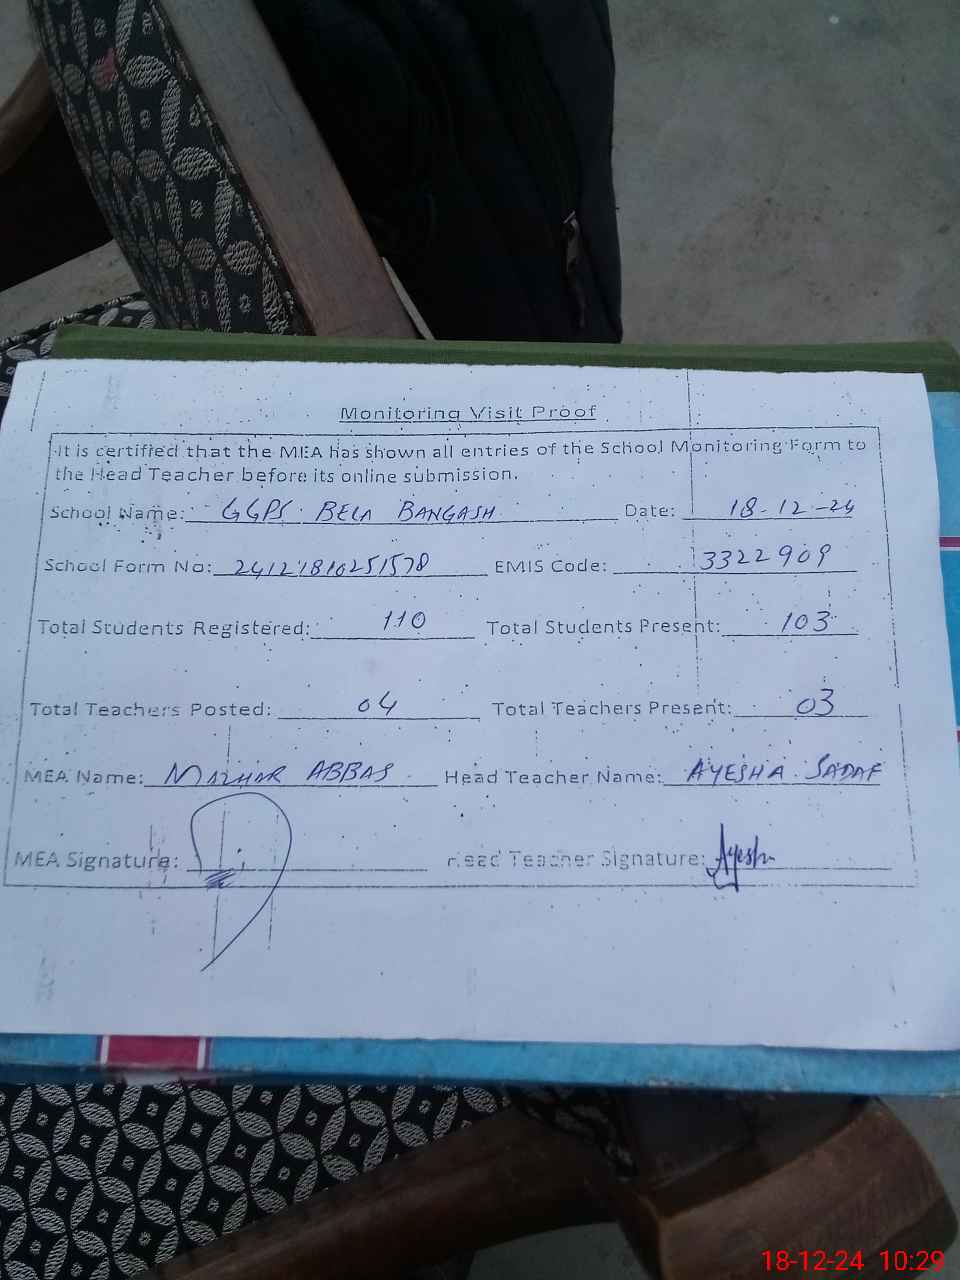 Monitoring Visit Proof
It is certified that the MEA has shown all entries of the School Monitoring Form to
the Head Teacher before its online submission.
School Name: GGPS BELA BANGASH Date: 18-12-24
School Form No: 24121810251578 EMIS Code: 3322909
Total Students Registered: 110 Total Students Present: 103
Total Teachers Posted: 04 Total Teachers Present: 03
MEA Name: MAZHAR ABBAS Head Teacher Name: AYESHA SADAF
MEA Signature: Head Teacher Signature: Ayesha
18-12-24 10:29